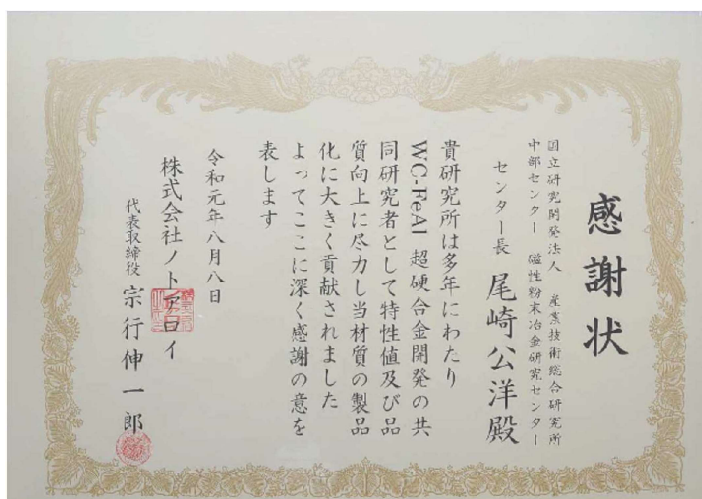 感謝状
国立研究開発法人 産業技術総合研究所
中部センター 磁性粉末冶金研究センター
センター長 尾崎公洋殿
貴研究所は多年にわたり
WC-FeAl 超硬合金開発の共
同研究者として特性値及び品
質向上に尽力し当材質の製品
化に大きく貢献されました
よってここに深く感謝の意を
表します
令和元年八月八日
株式会社ノトアロイ
代表取締役 宗行伸一郎